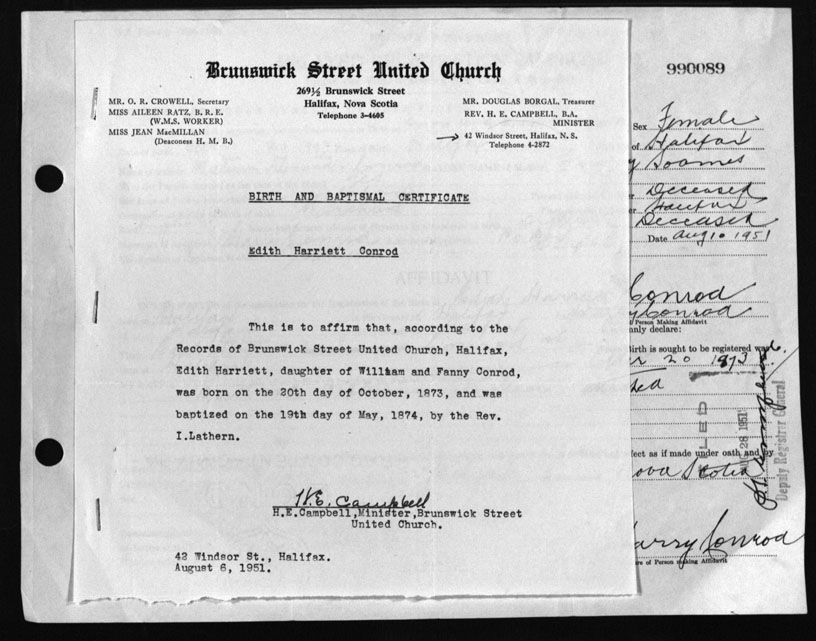 Brunswick Street United Church
269½ Brunswick Street
Halifax, Nova Scotia
Telephone 3-4605
MR. O. R. CROWELL, Secretary
MISS AILEEN RATZ, B. R. E.
(W.M.S. WORKER)
MISS JEAN MacMILLAN
(Deaconess H. M. B.)
MR. DOUGLAS BORGAL, Treasurer
REV. H. E. CAMPBELL, B.A.
MINISTER
42 Windsor Street, Halifax, N. S.
Telephone 4-2872
BIRTH AND BAPTISMAL CERTIFICATE
Edith Harriett Conrod
This is to affirm that, according to the
Records of Brunswick Street United Church, Halifax,
Edith Harriett, daughter of William and Fanny Conrod,
was born on the 20th day of October, 1873, and was
baptized on the 19th day of May, 1874, by the Rev.
I.Lathern.
H.E. Campbell
H.E.Campbell,Minister,Brunswick Street
United Church.
42 Windsor St., Halifax.
August 6, 1951.
990089
Sex Female
of Halifax
y Soames
Deceased
Halifax
Deceased
Date Aug 10 1951
Conrod
y Conrod
Person Making Affidavit
nly declare:
Birth is sought to be registered was
20 1873
LED
28 1951
Deputy Registrar General
fect as if made under oath and by
ova Scotia
arry Conrod
re of Person making Affidavit
AFFIDAVIT